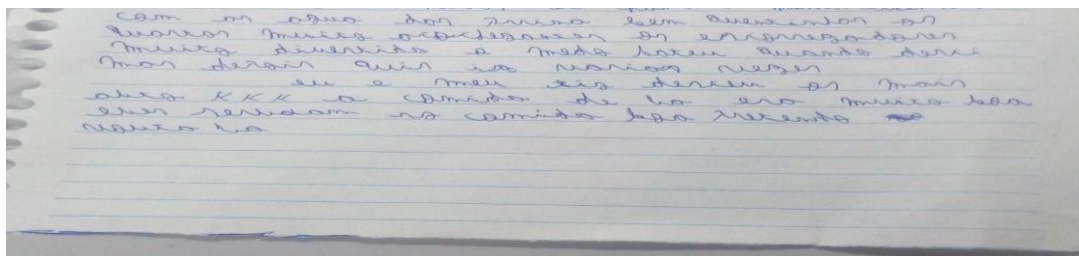 com as agua das bem quentinhas os
quartos muito os escorregadores
muito divertido o medo bateu quando desci
mas depois quis ir varias vezes
eu e meu tio os mais
alto KKK a comida de la era muito boa
eles serviam as comida boa pretendo
volta la